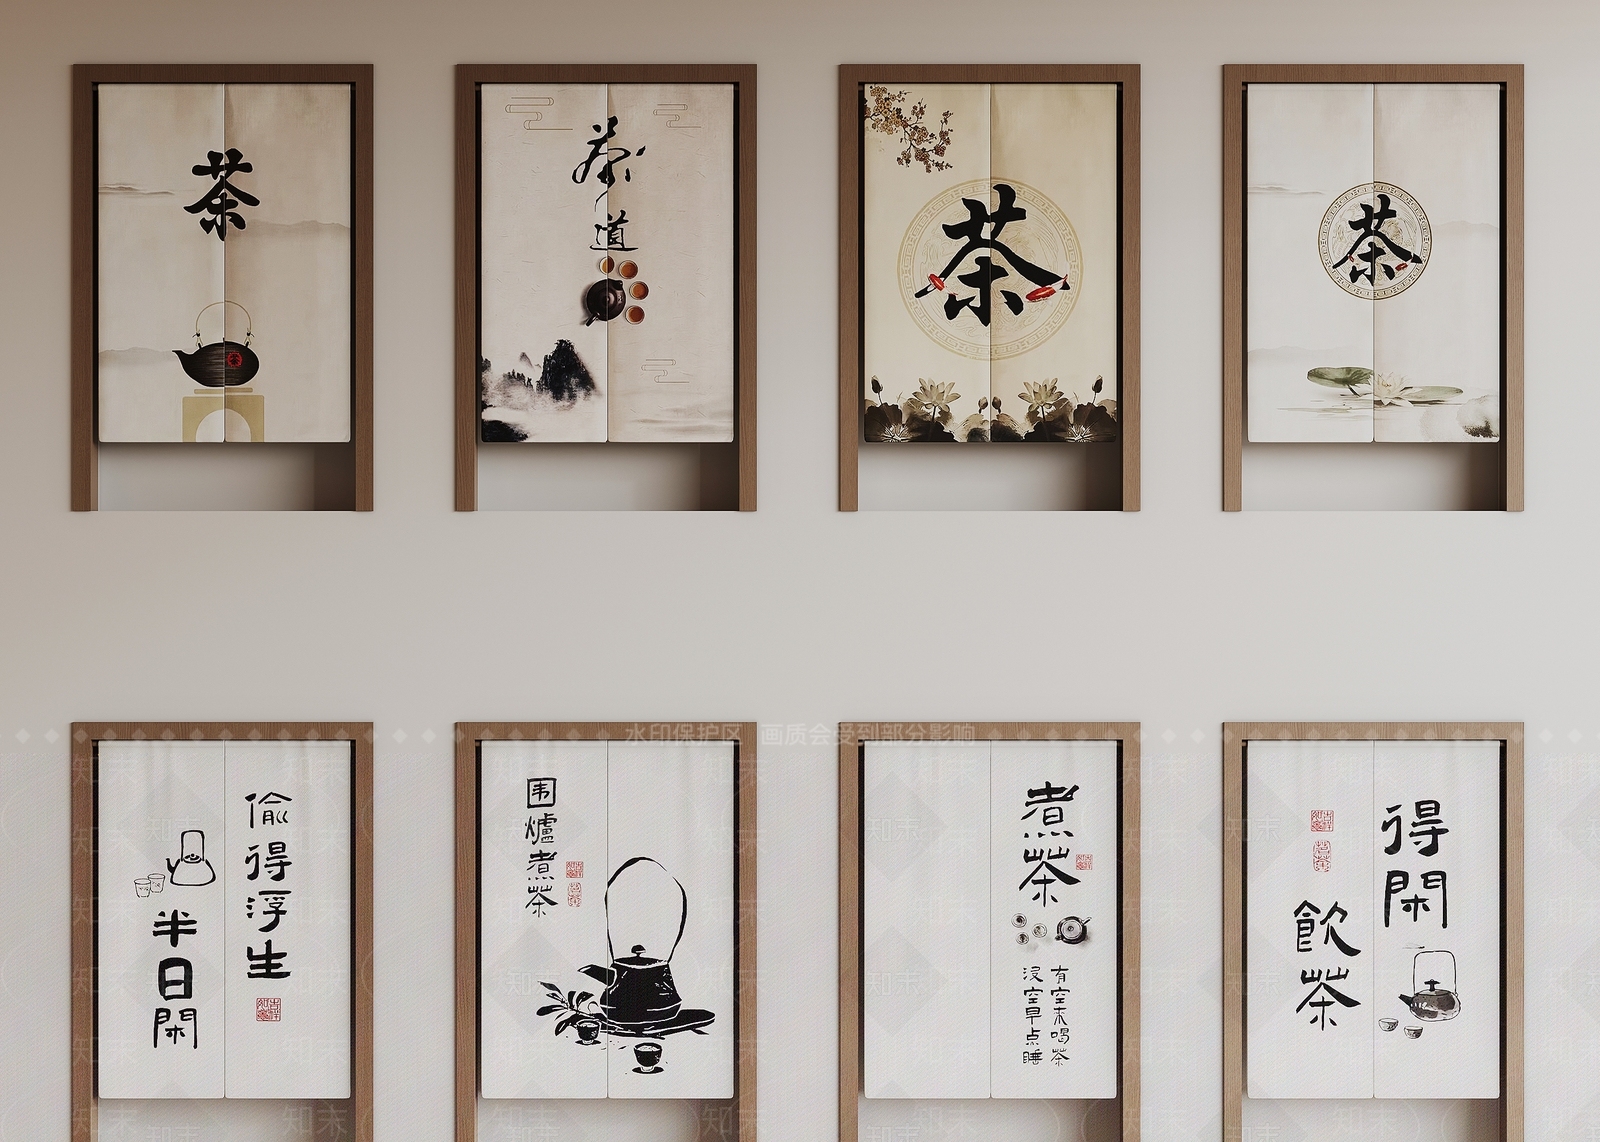 茶
茶
茶道
茶
茶
水印保护区 画质会受到部分影响
偷得浮生
半日閑
围爐煮茶
煮茶
有空来喝茶
没空早点睡
得閑
飲茶
知末